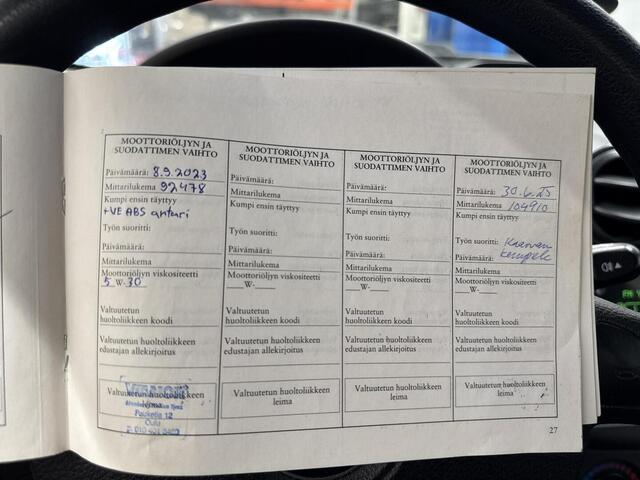 MOOTTORIÖLJYN JA
SUODATTIMEN VAIHTO
Päivämäärä: 8.9.2023
Mittarilukema 92478
Kumpi ensin täyttyy
+VE ABS anturi
Työn suoritti:
Päivämäärä:
Mittarilukema
Moottoriöljyn viskositeetti
5 W-30
Valtuutetun
huoltoliikkeen koodi
Valtuutetun huoltoliikkeen
edustajan allekirjoitus
Valtuutetun huoltoliikkeen
leima
Oulu
MOOTTORIÖLJYN JA
SUODATTIMEN VAIHTO
Päivämäärä:
Mittarilukema
Kumpi ensin täyttyy
Työn suoritti:
Päivämäärä:
Mittarilukema
Moottoriöljyn viskositeetti
__W-__
Valtuutetun
huoltoliikkeen koodi
Valtuutetun huoltoliikkeen
edustajan allekirjoitus
Valtuutetun huoltoliikkeen
leima
MOOTTORIÖLJYN JA
SUODATTIMEN VAIHTO
Päivämäärä:
Mittarilukema
Kumpi ensin täyttyy
Työn suoritti:
Päivämäärä:
Mittarilukema
Moottoriöljyn viskositeetti
__W-__
Valtuutetun
huoltoliikkeen koodi
Valtuutetun huoltoliikkeen
edustajan allekirjoitus
Valtuutetun huoltoliikkeen
leima
MOOTTORIÖLJYN JA
SUODATTIMEN VAIHTO
Päivämäärä: 30.6.25
Mittarilukema 104910
Kumpi ensin täyttyy
Työn suoritti:
Päivämäärä: Kempele
Mittarilukema
Moottoriöljyn viskositeetti
__W-__
Valtuutetun
huoltoliikkeen koodi
Valtuutetun huoltoliikkeen
edustajan allekirjoitus
Valtuutetun huoltoliikkeen
leima
27